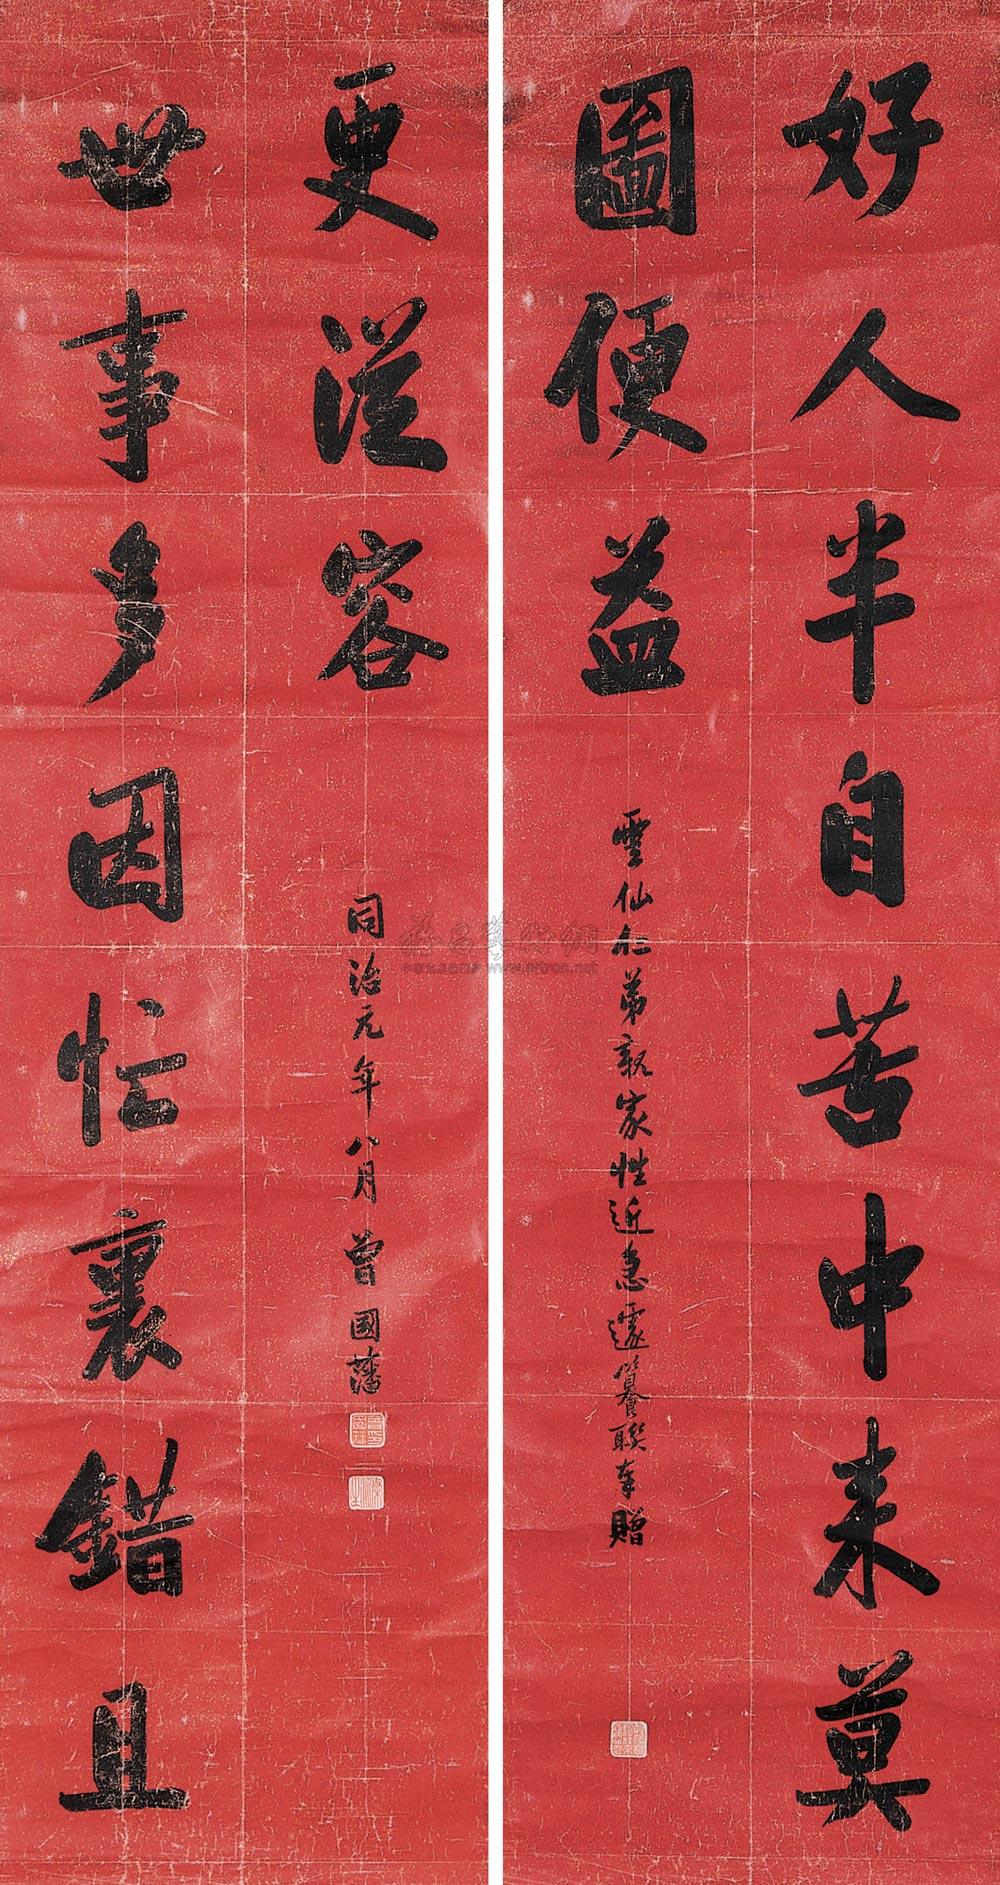 好人半自苦中来莫
圖便益
雲仙仁弟親家性近急遽纂聯奉贈
世事多因忙裏錯且
更從容
同治元年八月曾國藩
雅昌藝術網
www.artron.net